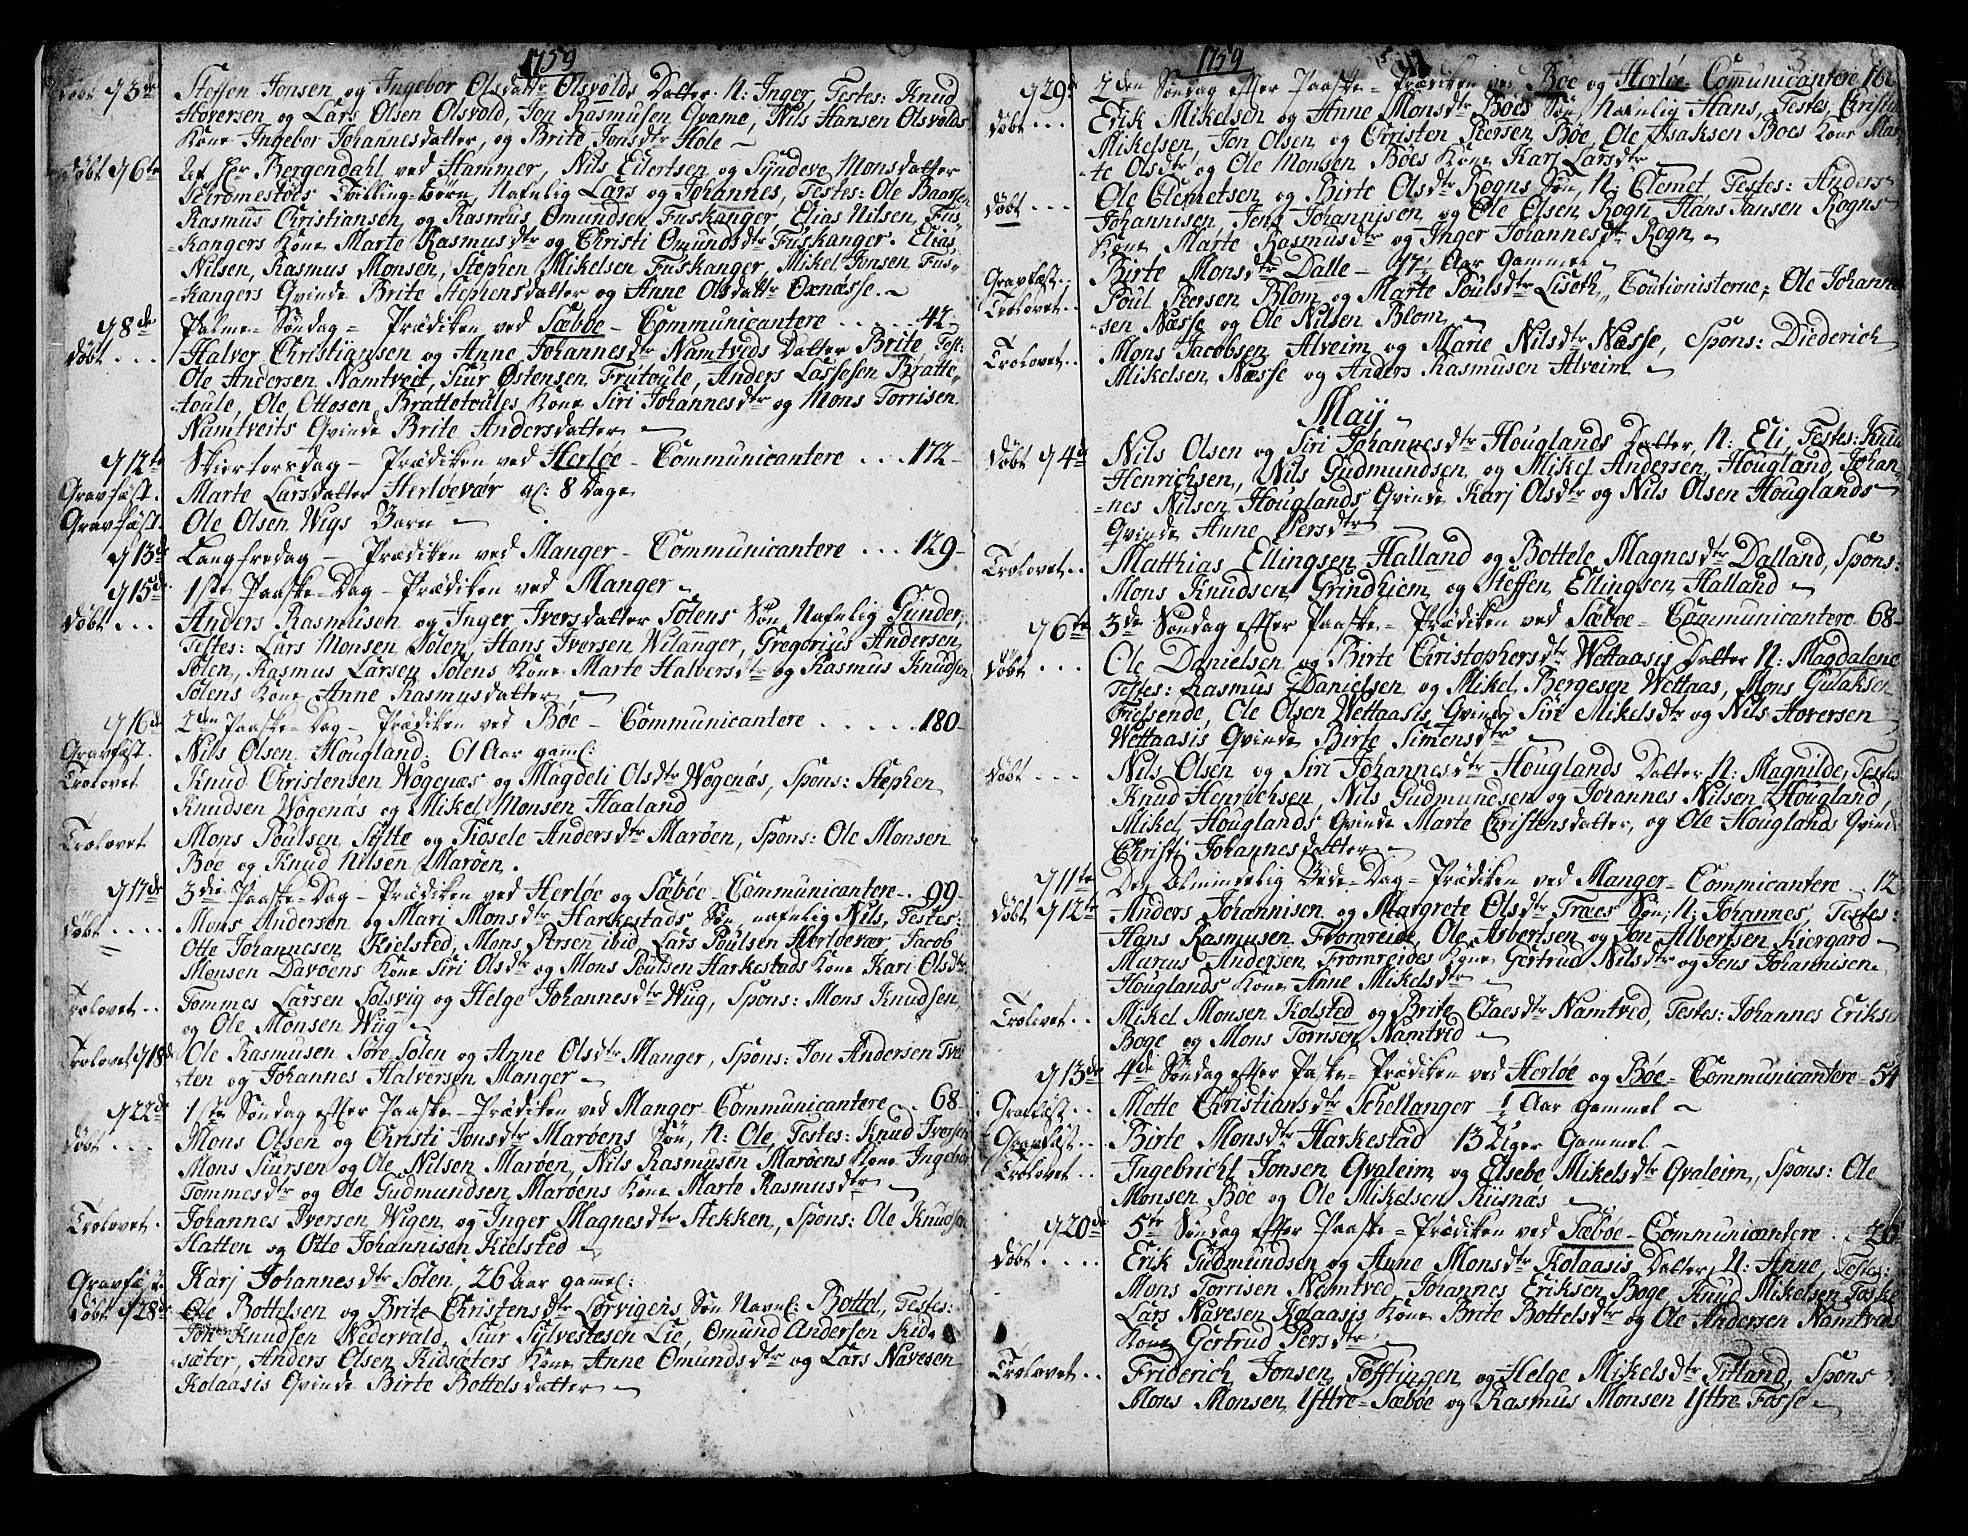 1759
Døbt d 3de Steffen Jonsen og Ingebor Olsdatr Olsvolds Datter N: Inger, Testes: Knud
Hoversen og Lars Olsen Olsvold, Jon Rasmusen Qvame, Nils Hansen Olsvolds
Kone Ingebor Johannesdatter, og Brite Jonsdtr Hole
Døbt d 6te Af Hr Bergendahl ved Hammer, Nils Eilertsen og Syndeve Monsdatter
Tvilling-Børn, Nafnlig Lars og Johannes, Testes: Ole Baarsen
Rasmus Christiansen og Rasmus Omundsen Fuskanger, Elias Nilsen, Fus-
-kangers Kone Marte Rasmusdtr og Christi Omundsdtr Fuskanger. Elias
Nilsen, Rasmus Monsen, Stephen Mikelsen Fuskanger, Mikel Jonsen Fus-
-kangers Qvinde Brite Stephensdatter og Anne Olsdattr Oxnæsse.
d 8de Palme-Søndag - Prædiken ved Sæbøe - Communicantere 42-
Døbt Halver Christiansen og Anne Johannesdtr Namtveds Datter Brite Test:
Ole Andersen Namtveit, Siur Østensen Frutoule, Anders Lassesen Bratte-
-toule, Ole Ottosen, Brattetoules Kone Siri Johannesdtr og Mons Torrisen
Namtveits Qvinde Brite Andersdatter
d 12te Skiertorsdag - Prædiken ved Herløe - Communicantere 172-
Gravfæst. Marte Larsdatter Herløevær gl: 8 Dage
Gravfæst. Ole Olsen Wigs Barn
d 13de Langfredag - Prædiken ved Manger - Communicantere 129-
d 15de 1ste Paaske-Dag - Prædiken ved Manger
Døbt Anders Rasmusen og Inger Iversdatter Solens Søn Nafnlig Gunder,
Testes: Lars Monsen Solen, Hans Iversen Wilanger, Gregorius Andersen
Solen, Rasmus Larsen Solens Kone Marte Halversdtr og Rasmus Knudsen
Solens Kone Anne Rasmusdatter
d 16de 2den Paaske-Dag - Prædiken ved Bøe - Communicantere 180-
Gravfæst. Nils Olsen Hougland, 61 Aar gaml:
Trolovet Knud Christensen Wogenæs og Magdeli Olsdtr Wogenæs, Spons: Stephen
Knudsen Wogenæs og Mikel Monsen Haaland
Trolovet Mons Poulsen Sylte og Siosele Andersdtr Marøen, Spons: Ole Monsen
Bøe og Knud Nilsen Marøen.
d 17de 3die Paaske-Dag - Prædiken ved Herløe og Sæbøe - Communicantere 99
Døbt Mons Andersen og Mari Monsdtr Harkestads Søn nafnlig Nils, Testes:
Otte Johannesen Kielsted, Mons Persen ibid, Lars Poulsen Herløevær Jacob
Monsen Davøens Kone Siri Olsdtr og Mons Poulsen Harkestads Kone Kari Olsdtr
Trolovet Tommes Larsen Solsvig og Helge Johannesdtr Wug, Spons: Mons Knudsen,
og Ole Monsen Wiig
Trolovet d 18de Ole Rasmusen Søre-Solen og Anne Olsdtr Manger, Spons: Jon Andersen Tve-
-ten og Johannes Halversen Manger
d 22de 1ste Søndag efter Paaske - Prædiken ved Manger - Communicantere 68-
Døbt Mons Olsen og Christi Jonsdtr Marøens Søn, N: Ole, Testes: Knud Iversen
Mons Siursen og Ole Nilsen Marøen, Nils Rasmusen Marøens Kone Ingebor
Tommesdtr og Ole Gudmundsen Marøens Kone Marte Rasmusdtr
Trolovet. Johannes Iversen Wigen og Inger Magnesdtr Stekken, Spons: Ole Knudsen
Hatten og Otte Johannisen Kielsted
Gravfæst. Kari Johannesdtr Solen, 26 Aar gamel:
Døbt d 28de Ole Bottelsen og Brite Christensdtr Lervigens Søn Navnl: Bottel, Testes:
Jon Knudsen Nedervald, Siur Sylvestesen Lie, Omund Andersen Kid-
-sæter, Anders Olsen Kidsæters Kone Anne Omundsdtr og Lars Navesen
Kolaasis Qvinde Birte Bottelsdatter
1759
3
d 29de 2den Søndag efter Paaske - Prædiken ved Boe og Herløe - Comunicantere 16
Døbt Erik Mikelsen og Anne Monsdtr Boes Søn, Nafnlig Hans, Testes, Christen
Mikelsen, Jon Olsen og Christen Persen Bøe, Ole Isaksen Boes Kone Mar-
-te Olsdtr og Ole Monsen Boes Kone Kari Larsdtr
Døbt Ole Clemetsen og Birte Olsdtr Rogns Søn, N: Clemet Testes: Anders
Johannisen, Jens Johannisen og Ole Olsen Rogn Hans Jansen Rogns
Kone Marte Rasmusdtr og Inger Johannesdtr Rogn
Gravfæst. Birte Monsdtr Dalle - 47 Aar Gammel
Trolovet. Poul Persen Blom og Marte Poulsdtr Liseth, Coutionisterne, Ole Johanne-
-sen Næsse og Ole Nilsen Blom
Trolovet. Mons Jacobsen Alveim og Marie Nilsdtr Næsse, Spons: Diederich
Mikelsen Næsse og Anders Rasmusen Alveim
Maij
Døbt d 4de Nils Olsen og Siri Johannesdtr Houglands Datter, N: Eli, Testes: Knud
Henrichsen, Nils Gudmundsen og Mikel Andersen Hougland, Johan-
-nes Nilsen Houglands Qvinde Karj Olsdtr og Nils Olsen Houglands
Qvinde Anne Persdtr
Trolovet. Matthias Ellingsen Halland og Bottele Magnesdtr Dalland, Spons:
Mons Knudsen Grindhiem og Steffen Ellingsen Halland
d 6te 3de Søndag efter Paaske - Prædiken ved Sæbøe - Communicantere 68-
Døbt Ole Danielsen og Birte Christophersdtr Wettaasis Datter N: Magdalene
Testes: Rasmus Danielsen og Mikel Bergesen Wettaas, Mons Gulaksen
Fussende, Ole Olsen Wettaasis Qvinde Siri Mikelsdtr og Nils Hoversen
Wettaasis Qvinde Birte Simensdtr
Døbt Nils Olsen og Siri Johannesdtr Houglands Datter N: Magnilde, Testes
Knud Henrichsen, Nils Gudmundsen og Johannes Nilsen Hougland,
Mikel Houglands Qvinde Marte Christensdatter, og Ole Houglands Qvinde
Christi Johannesdatter
d 11te Den Almindelig Bede-Dag - Prædiken ved Manger - Commicantere 12
Døbt d 12te Anders Johannisen og Margrete Olsdtr Træes Søn, N: Johannes, Testes:
Hans Rasmusen Fromreide, Ole Asbertsen og Jon Albertsen Kiergard
Marcus Andersen Fromreides Kone Gertrud Nilsdtr og Jens Johannisen
Houglands Kone Anne Mikelsdtr
Trolovet. Mikel Monsen Kolsted og Brite Claesdtr Namtved, Testes: Johannes Eriksen
Boge og Mons Torrisen Namtved
d 13de 4de Søndag efter Paske - Prædiken ved Herløe og Bøe - Communicantere - 54
Gravfæst Mette Christiansdtr Schellanger 1/2 Aar Gammel
Gravfæst. Birte Monsdtr Harkestad 13 Uger Gammel
Trolovet. Ingebricht Jonsen Qvaleim og Elsebe Mikelsdtr Qvaleim, Spons: Ole
Monsen Bøe og Ole Mikelsen Riisnæs
d 20de 5te Søndag efter Paaske - Prædiken ved Sæbøe - Communicantere 26
Døbt Erik Gudmundsen og Anne Monsdtr Kolaasis Datter, N: Anne, Testes:
Mons Torrisen Namtved Johannes Eriksen Boge, Knud Mikelsen Foske
Lars Navesen Kolaasis Kone Brite Bottelsdtr og Ole Andersen Namtveds
Kone Gertrud Persdtr
Trolovet. Friderich Jonsen Tofttingen og Helge Mikelsdtr Titland, Spons
Mons Monsen Yttre-Sæbøe og Rasmus Monsen Yttre Fosse